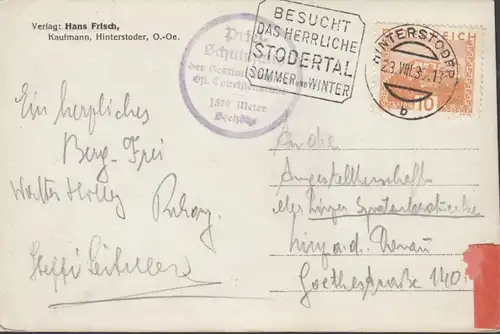 Verlag: Hans Frisch,
Kaufmann, Hinterstoder, O.-Oe.
Priel-
Schutzhaus
der Sektion
Öst. Touristenklub
1520 Meter
Seehöhe
BESUCHT
DAS HERRLICHE
STODERTAL
SOMMER UND WINTER
HINTERSTODER
23.VIII.3
b
REICH
10
Ein herzliches
Berg-Frei
Walter
Steffi
An die
Angestelltenschaft
der Linzer
Linz a.d. Donau
Goethestraße 140